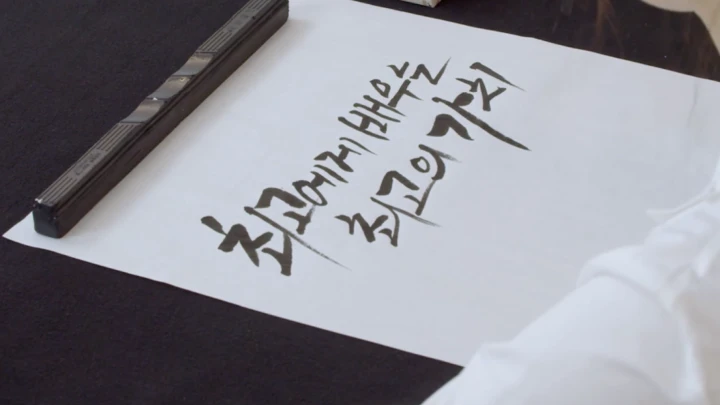 최고에게 배우는
최고의 가치